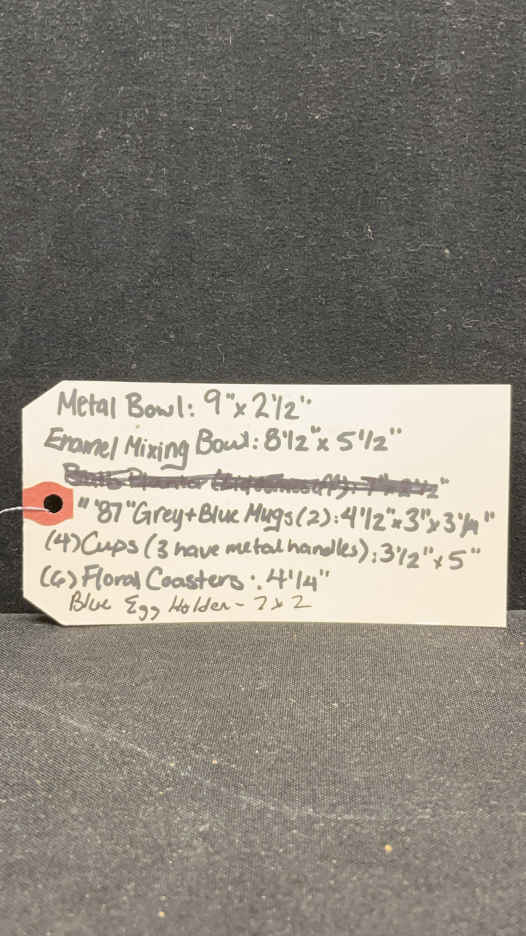 Metal Bowl: 9"x 2 1/2"
Enamel Mixing Bowl: 8 1/2"x 5 1/2"
"'87" Grey+Blue Mugs (2): 4 1/2"x 3"x 3 1/4"
(4) Cups (3 have metal handles): 3 1/2"x 5"
(6) Floral Coasters: 4 1/4"
Blue Egg Holder - 7 x 2